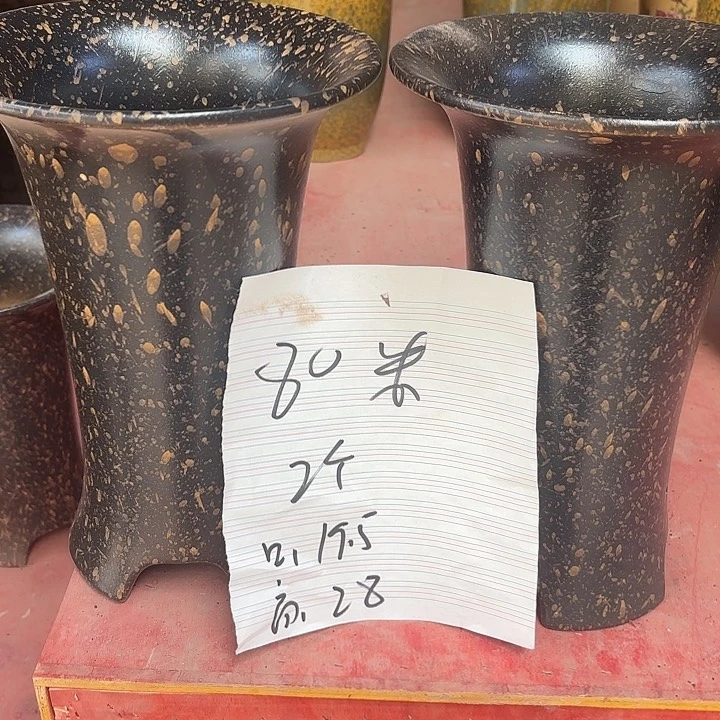 80米
2个
口,19.5
高,28